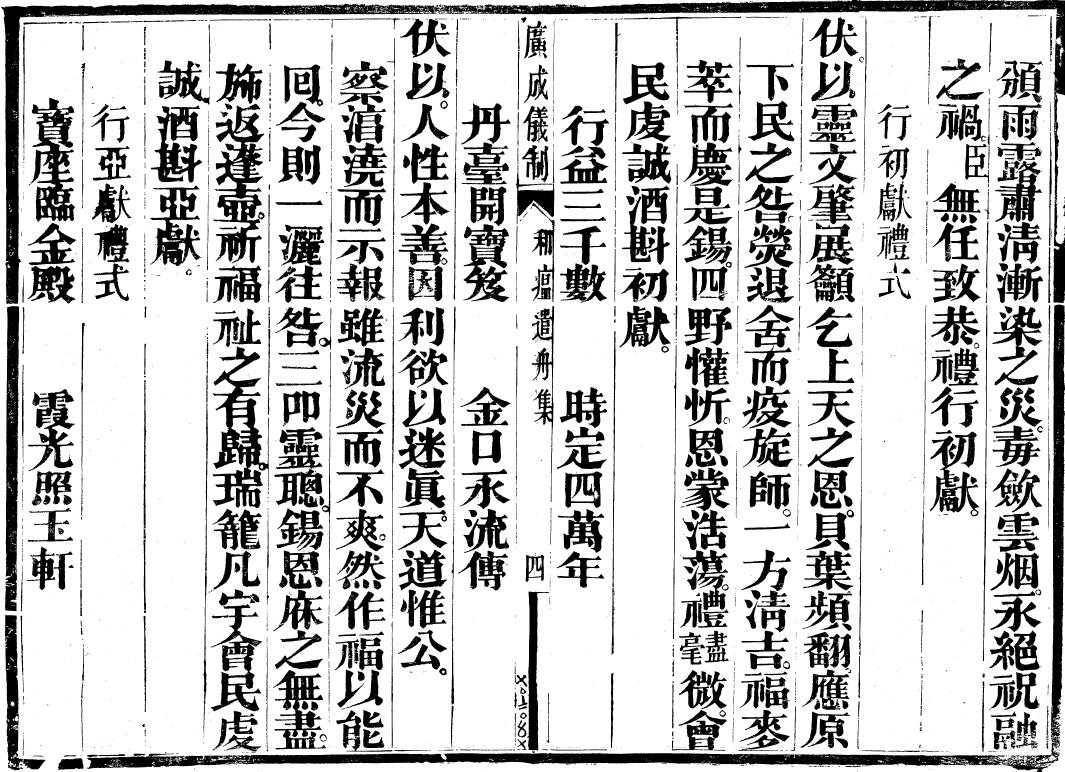 頒雨露肅淸漸染之災。毒歛雲烟。永絕祝融
之禍。臣無任致恭。禮行初獻。
行初獻禮式
伏以。靈文肇展籲乞上天之恩。貝葉頻翻。應原
下民之咎。熒退舍而疫旋師。一方淸吉。福麥
萃而慶是錫。四野懽忻。恩蒙浩蕩。禮盡毫微。會
民虔誠酒斟初獻。
行益三千數 時定四萬年
廣成儀制 和瘟遣舟集 四
丹臺開寶笈 金口永流傳
伏以。人性本善。因利欲以迷眞。天道惟公。
察淯澆而示報雖流災而不爽。然作福以能
囘。今則一灑往咎。三叩靈聰。錫恩庥之無盡。
施返蓬壺。祈福祉之有歸。瑞籠凡宇會民虔
誠酒斟亞獻。
行亞獻禮式
寶座臨金殿 霞光照玉軒